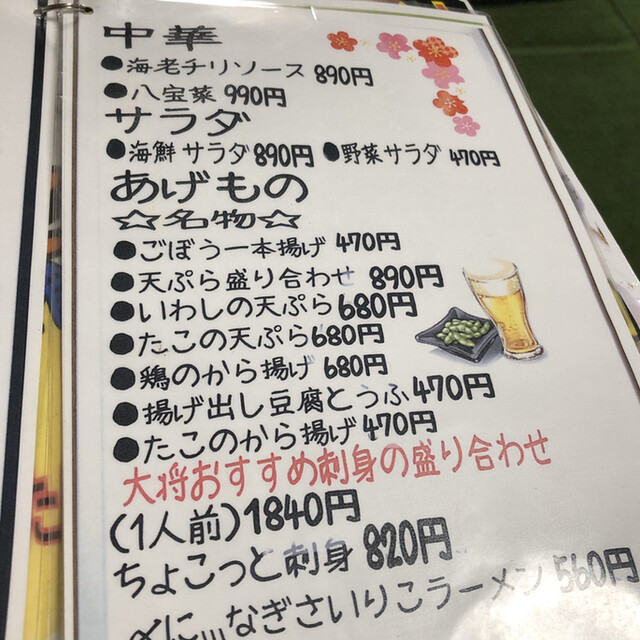 中華
●海老チリソース 890円
●八宝菜 990円
サラダ
●海鮮サラダ 890円 ●野菜サラダ 470円
あげもの
☆名物☆
●ごぼう一本揚げ 470円
●天ぷら盛り合わせ 890円
●いわしの天ぷら 680円
●たこの天ぷら 680円
●鶏のから揚げ 680円
●揚げ出し豆腐とうふ 470円
●たこのから揚げ 470円
大将おすすめ刺身の盛り合わせ
(1人前) 1840円
ちょこっと刺身 820円
〆に,,,なぎさいりこラーメン 560円